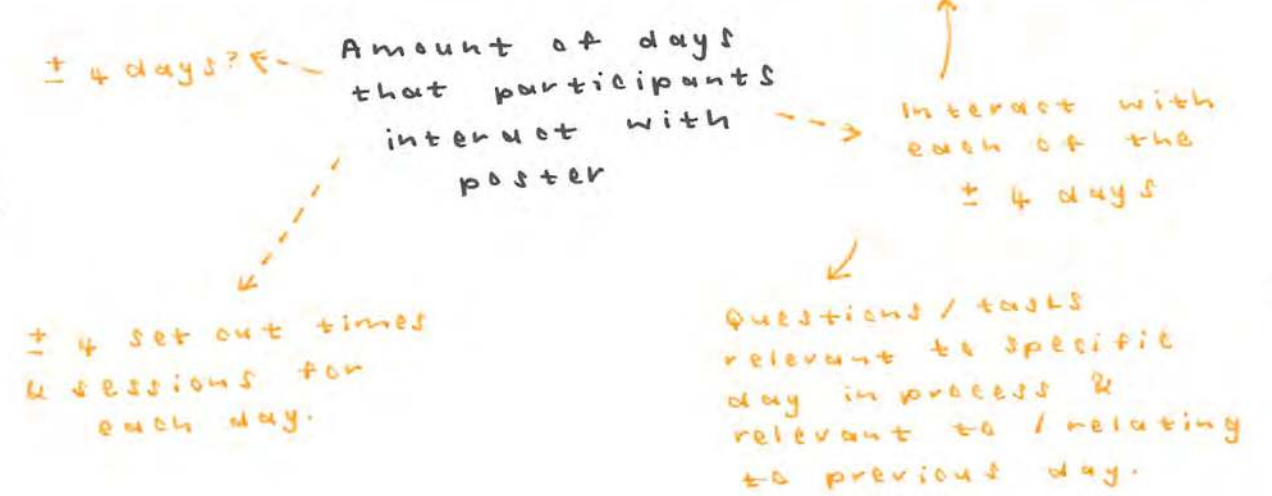 ± 4 days?
Amount of days
that participants
interact with
poster
Interact with
each of the
± 4 days
± 4 set out times
& sessions for
each day.
Questions / tasks
relevant to specific
day in process &
relevant to / relating
to previous day.